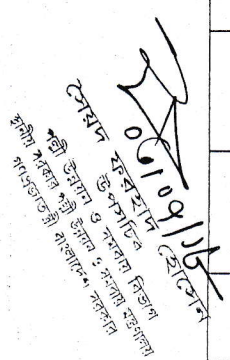 ০৫/০৭/১৮
সৈয়দ ফরহাদ হোসেন
উপসচিব
পল্লী উন্নয়ন ও সমবায় বিভাগ
স্থানীয় সরকার পল্লী উন্নয়ন ও সমবায় মন্ত্রণালয়
গণপ্রজাতন্ত্রী বাংলাদেশ সরকার